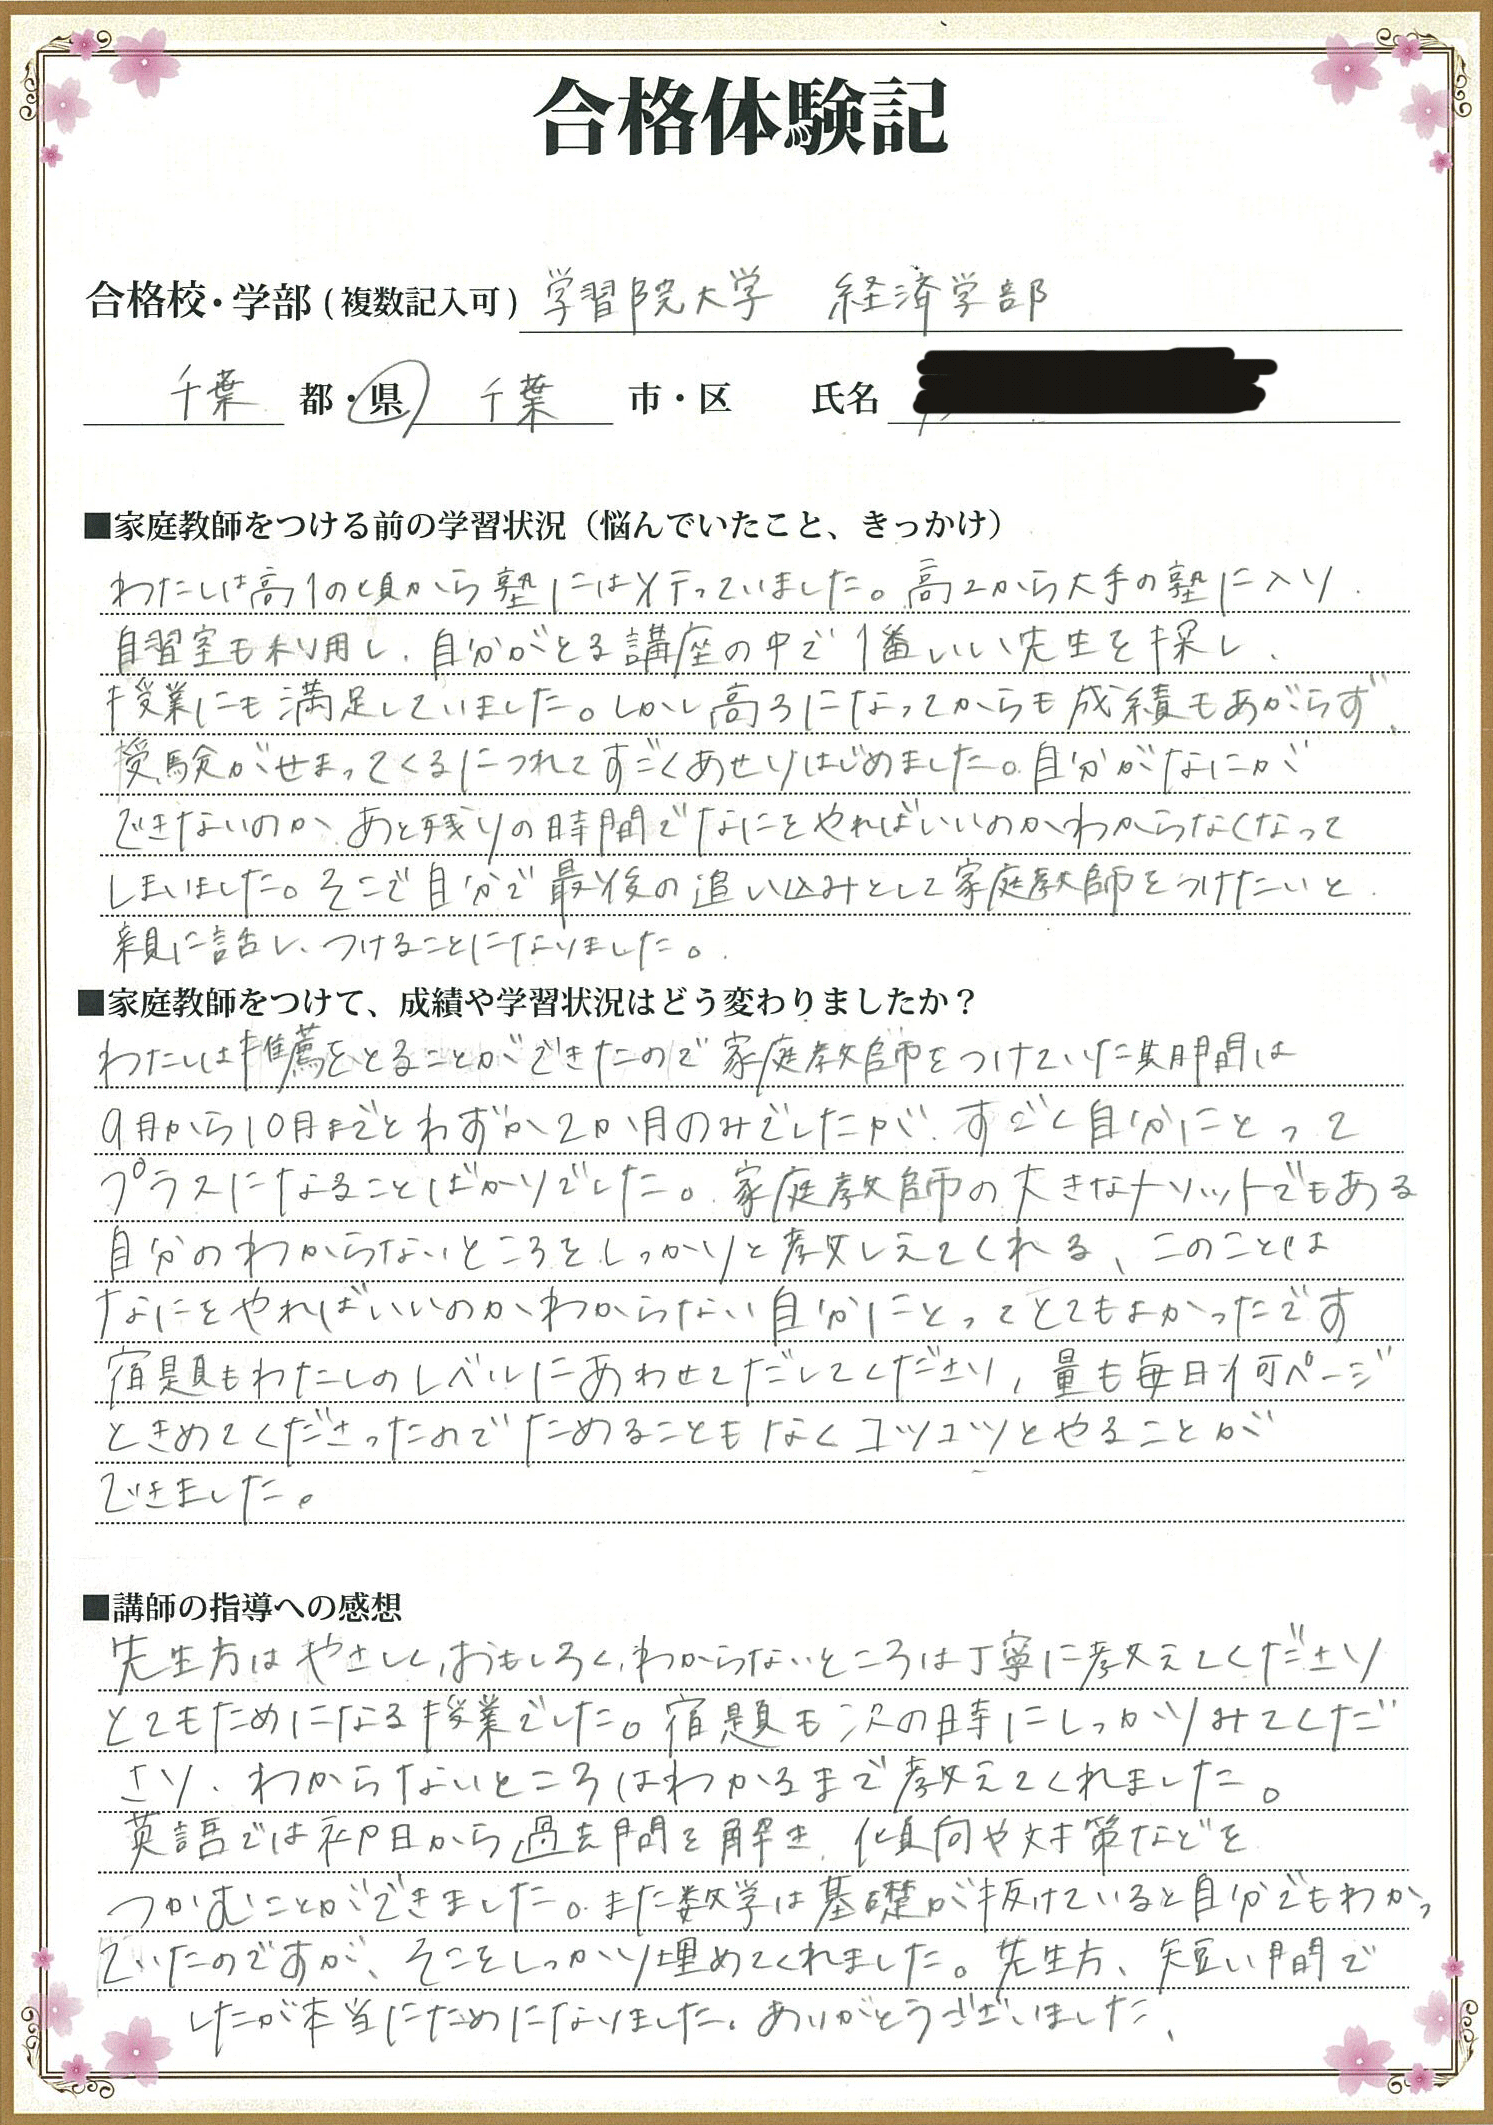 合格体験記
合格校・学部(複数記入可) 学習院大学 経済学部
千葉 都・県 千葉 市・区 氏名
■家庭教師をつける前の学習状況（悩んでいたこと、きっかけ）
わたしは高1の頃から塾には行っていました。高2から大手の塾に入り
自習室も利用し、自分がとる講座の中で1番いい先生を探し、
授業にも満足していました。しかし高3になってからも成績もあがらず、
受験がせまってくるにつれてすごくあせりはじめました。自分がなにが
できないのか、あと残りの時間でなにをやればいいのかわからなくなって
しまいました。そこで自分で最後の追い込みとして家庭教師をつけたいと
親に話し、つけることになりました。
■家庭教師をつけて、成績や学習状況はどう変わりましたか？
わたしは推薦をとることができたので家庭教師をつけていた期間は
9月から10月までとわずか2か月のみでしたが、すごく自分にとって
プラスになることばかりでした。家庭教師の大きなメリットでもある
自分のわからないところをしっかりと教しえてくれる、このことは
なにをやればいいのかわからない自分にとってとてもよかったです
宿題もわたしのレベルにあわせてだしてくださり、量も毎日何ページ
ときめてくださったのでためることもなくコツコツとやることが
できました。
■講師の指導への感想
先生方はやさしく、おもしろく、わからないところは丁寧に教えてくださり
とてもためになる授業でした。宿題も次の時にしっかりみてくだ
さり、わからないところはわかるまで教えてくれました。
英語では初日から過去問を解き、傾向や対策などを
つかむことができました。また数学は基礎が抜けていると自分でもわかっ
ていたのですが、そこをしっかり埋めてくれました。先生方、短い間で
したが本当にためになりました。ありがとうございました、